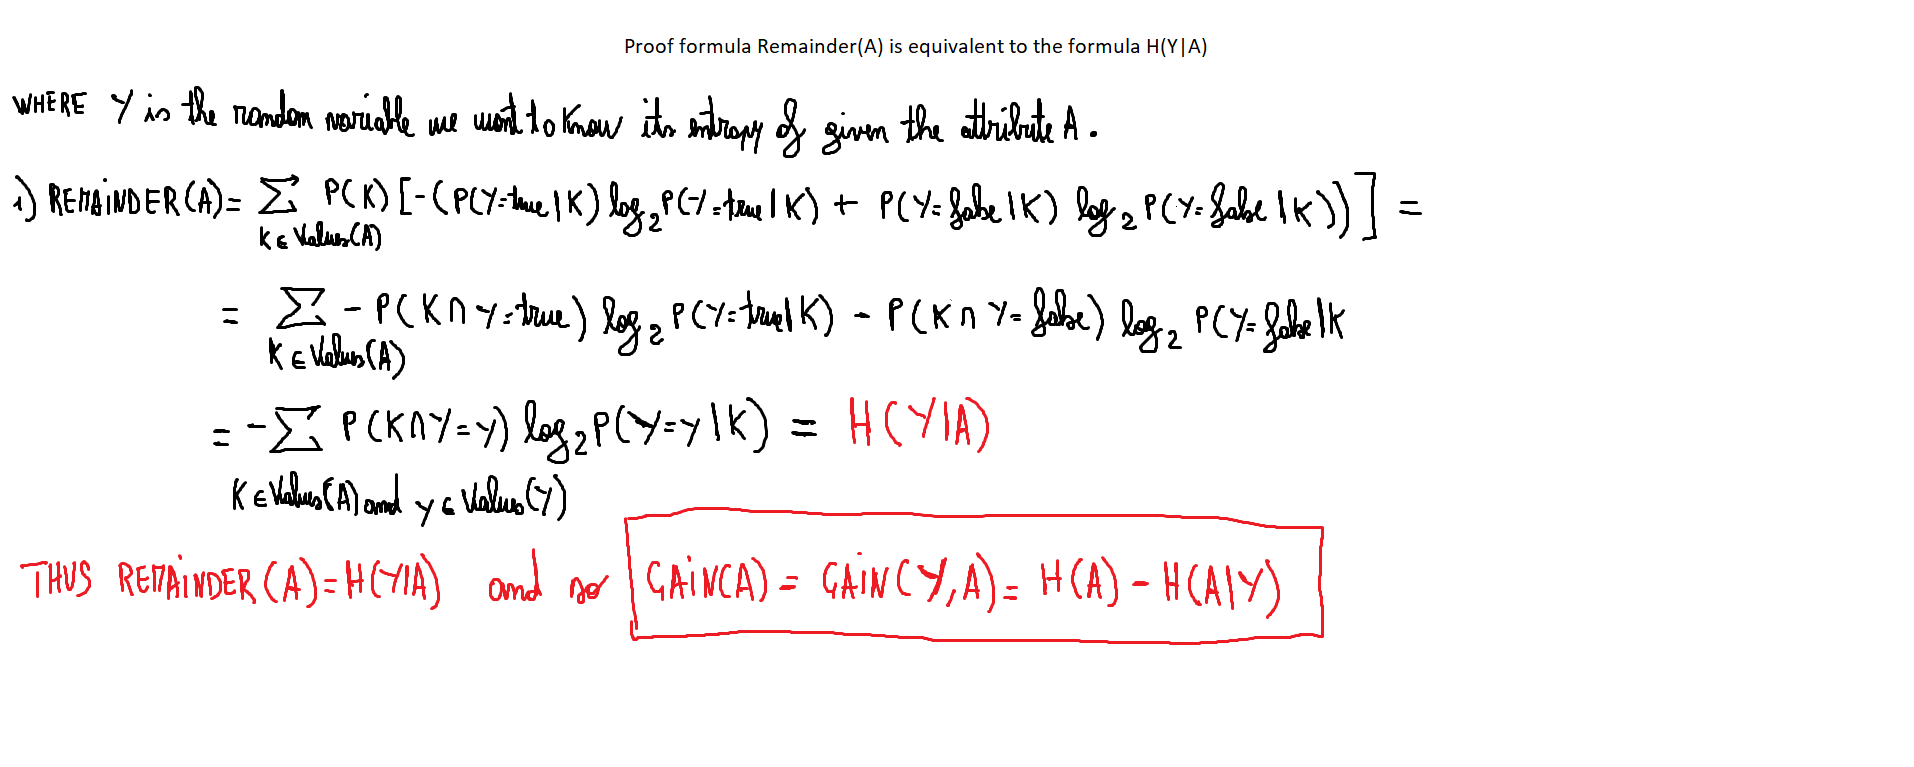 Proof formula Remainder(A) is equivalent to the formula H(Y|A)
WHERE Y is the random variable we want to know its entropy of given the attribute A.
i) REMAINDER(A)= ∑ P(K) [-(P(Y=true|K) log₂ P(Y=true|K) + P(Y=false|K) log₂ P(Y=false|K))] =
K ∈ Values(A)
= ∑ - P(K∩Y=true) log₂ P(Y=true|K) - P(K∩Y=false) log₂ P(Y=false|K
K ∈ Values(A)
= -∑ P(K∩Y=y) log₂ P(Y=y|K) = H(Y|A)
K ∈ Values(A) and y ∈ Values(Y)
THUS REMAINDER(A)=H(Y|A) and so GAIN(A) = GAIN(Y,A)= H(A) - H(A|Y)